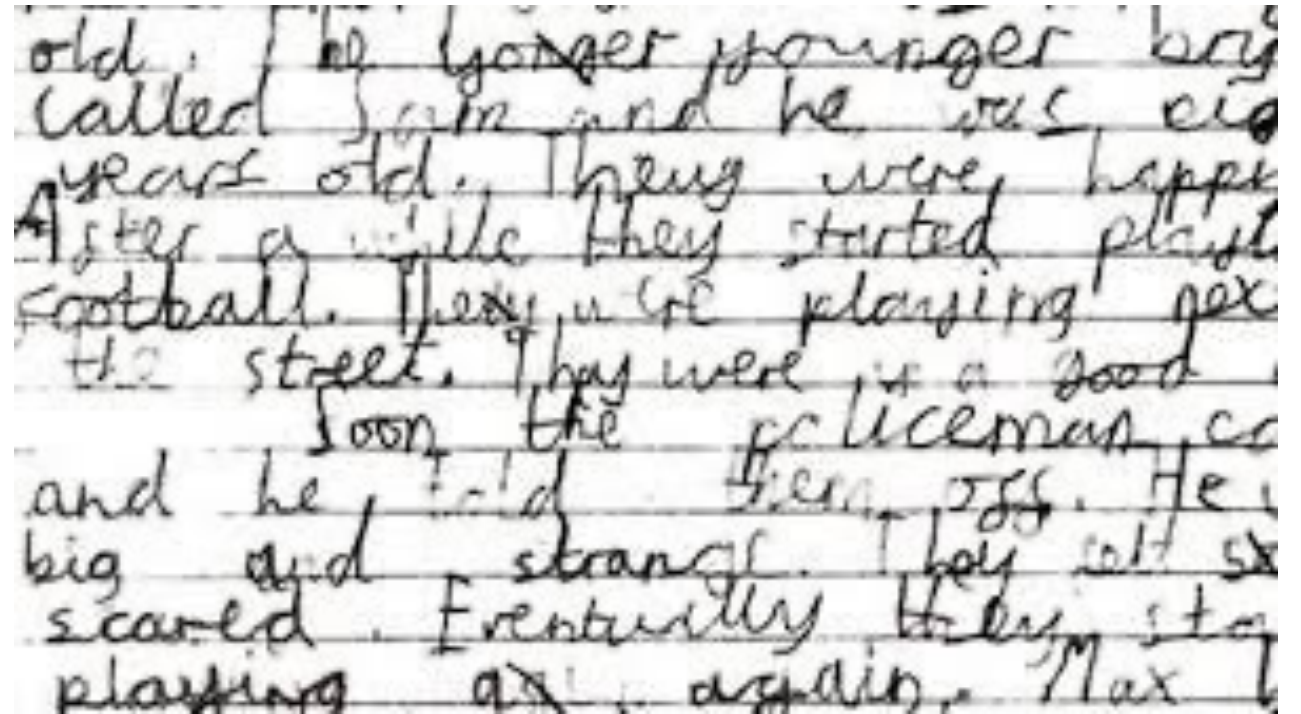 old. The yonger younger
called Sam and he was
years old. Theuy were
After a while they started
football. They were playing
the street. They were in a good
Soon the policeman
and he told them off. He
big and strange. They felt
scared. Eventually they
playing again. Max